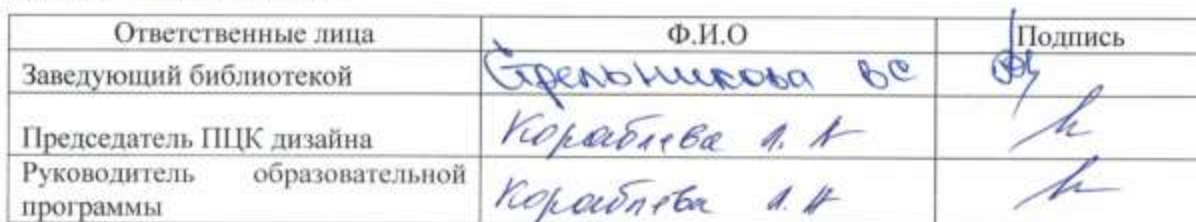 Ответственные лица Ф.И.О Подпись
Заведующий библиотекой Стрельникова ВС
Председатель ПЦК дизайна Кораблева Л. А
Руководитель образовательной
программы Кораблева Л. А